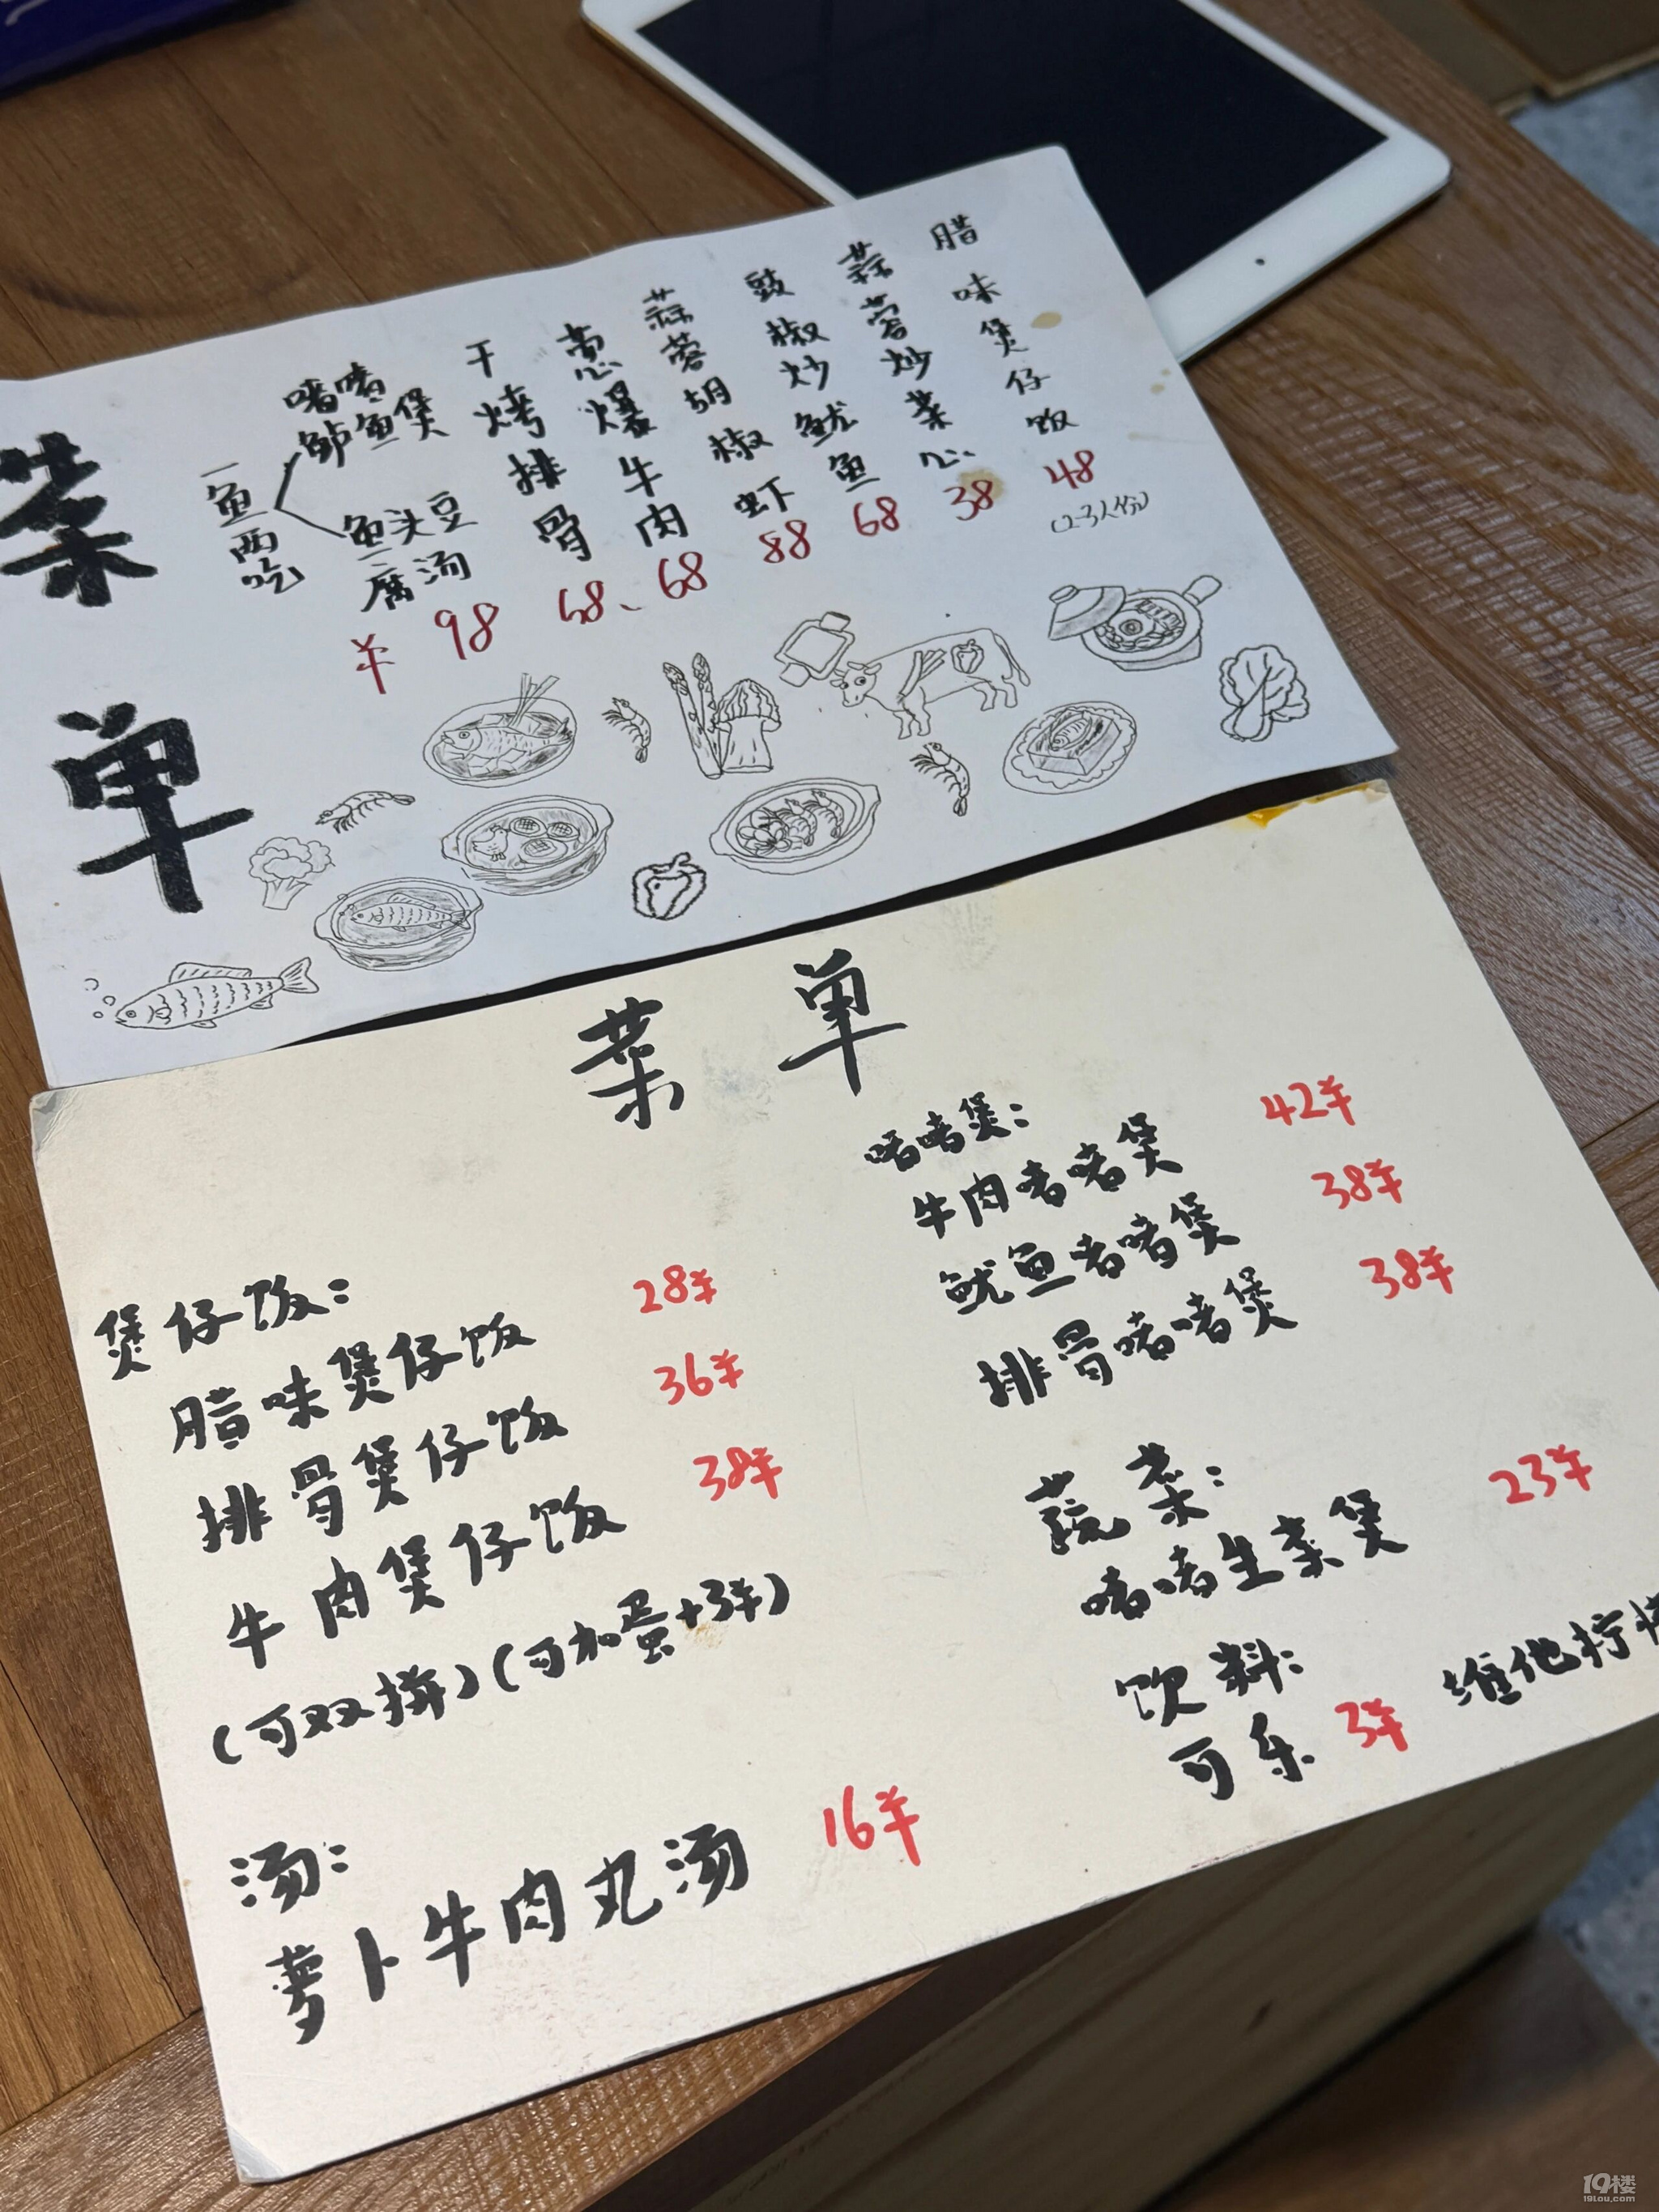 菜单
一鱼两吃
啫啫鲈鱼煲
鱼头豆腐汤
¥98
干烤排骨
68、
葱爆牛肉
68
蒜蓉胡椒虾
88
豉椒炒鱿鱼
68
蒜蓉炒菜心
38
腊味煲仔饭
48
(2-3人份)
菜单
煲仔饭:
腊味煲仔饭 28¥
排骨煲仔饭 36¥
牛肉煲仔饭 38¥
(可双拼)(可加蛋+3¥)
汤:
萝卜牛肉丸汤 16¥
啫啫煲:
牛肉啫啫煲 42¥
鱿鱼啫啫煲 38¥
排骨啫啫煲 38¥
蔬菜:
啫啫生菜煲 23¥
饮料:
可乐 3¥ 维他柠
19楼
19lou.com